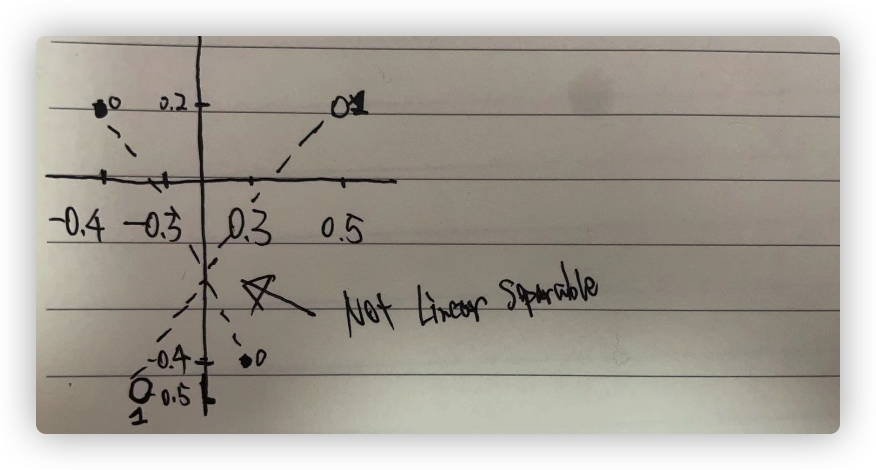 0 0.2 01
-0.4 -0.3 0.3 0.5
Not Linear Separable
-0.4 0
0.5
1